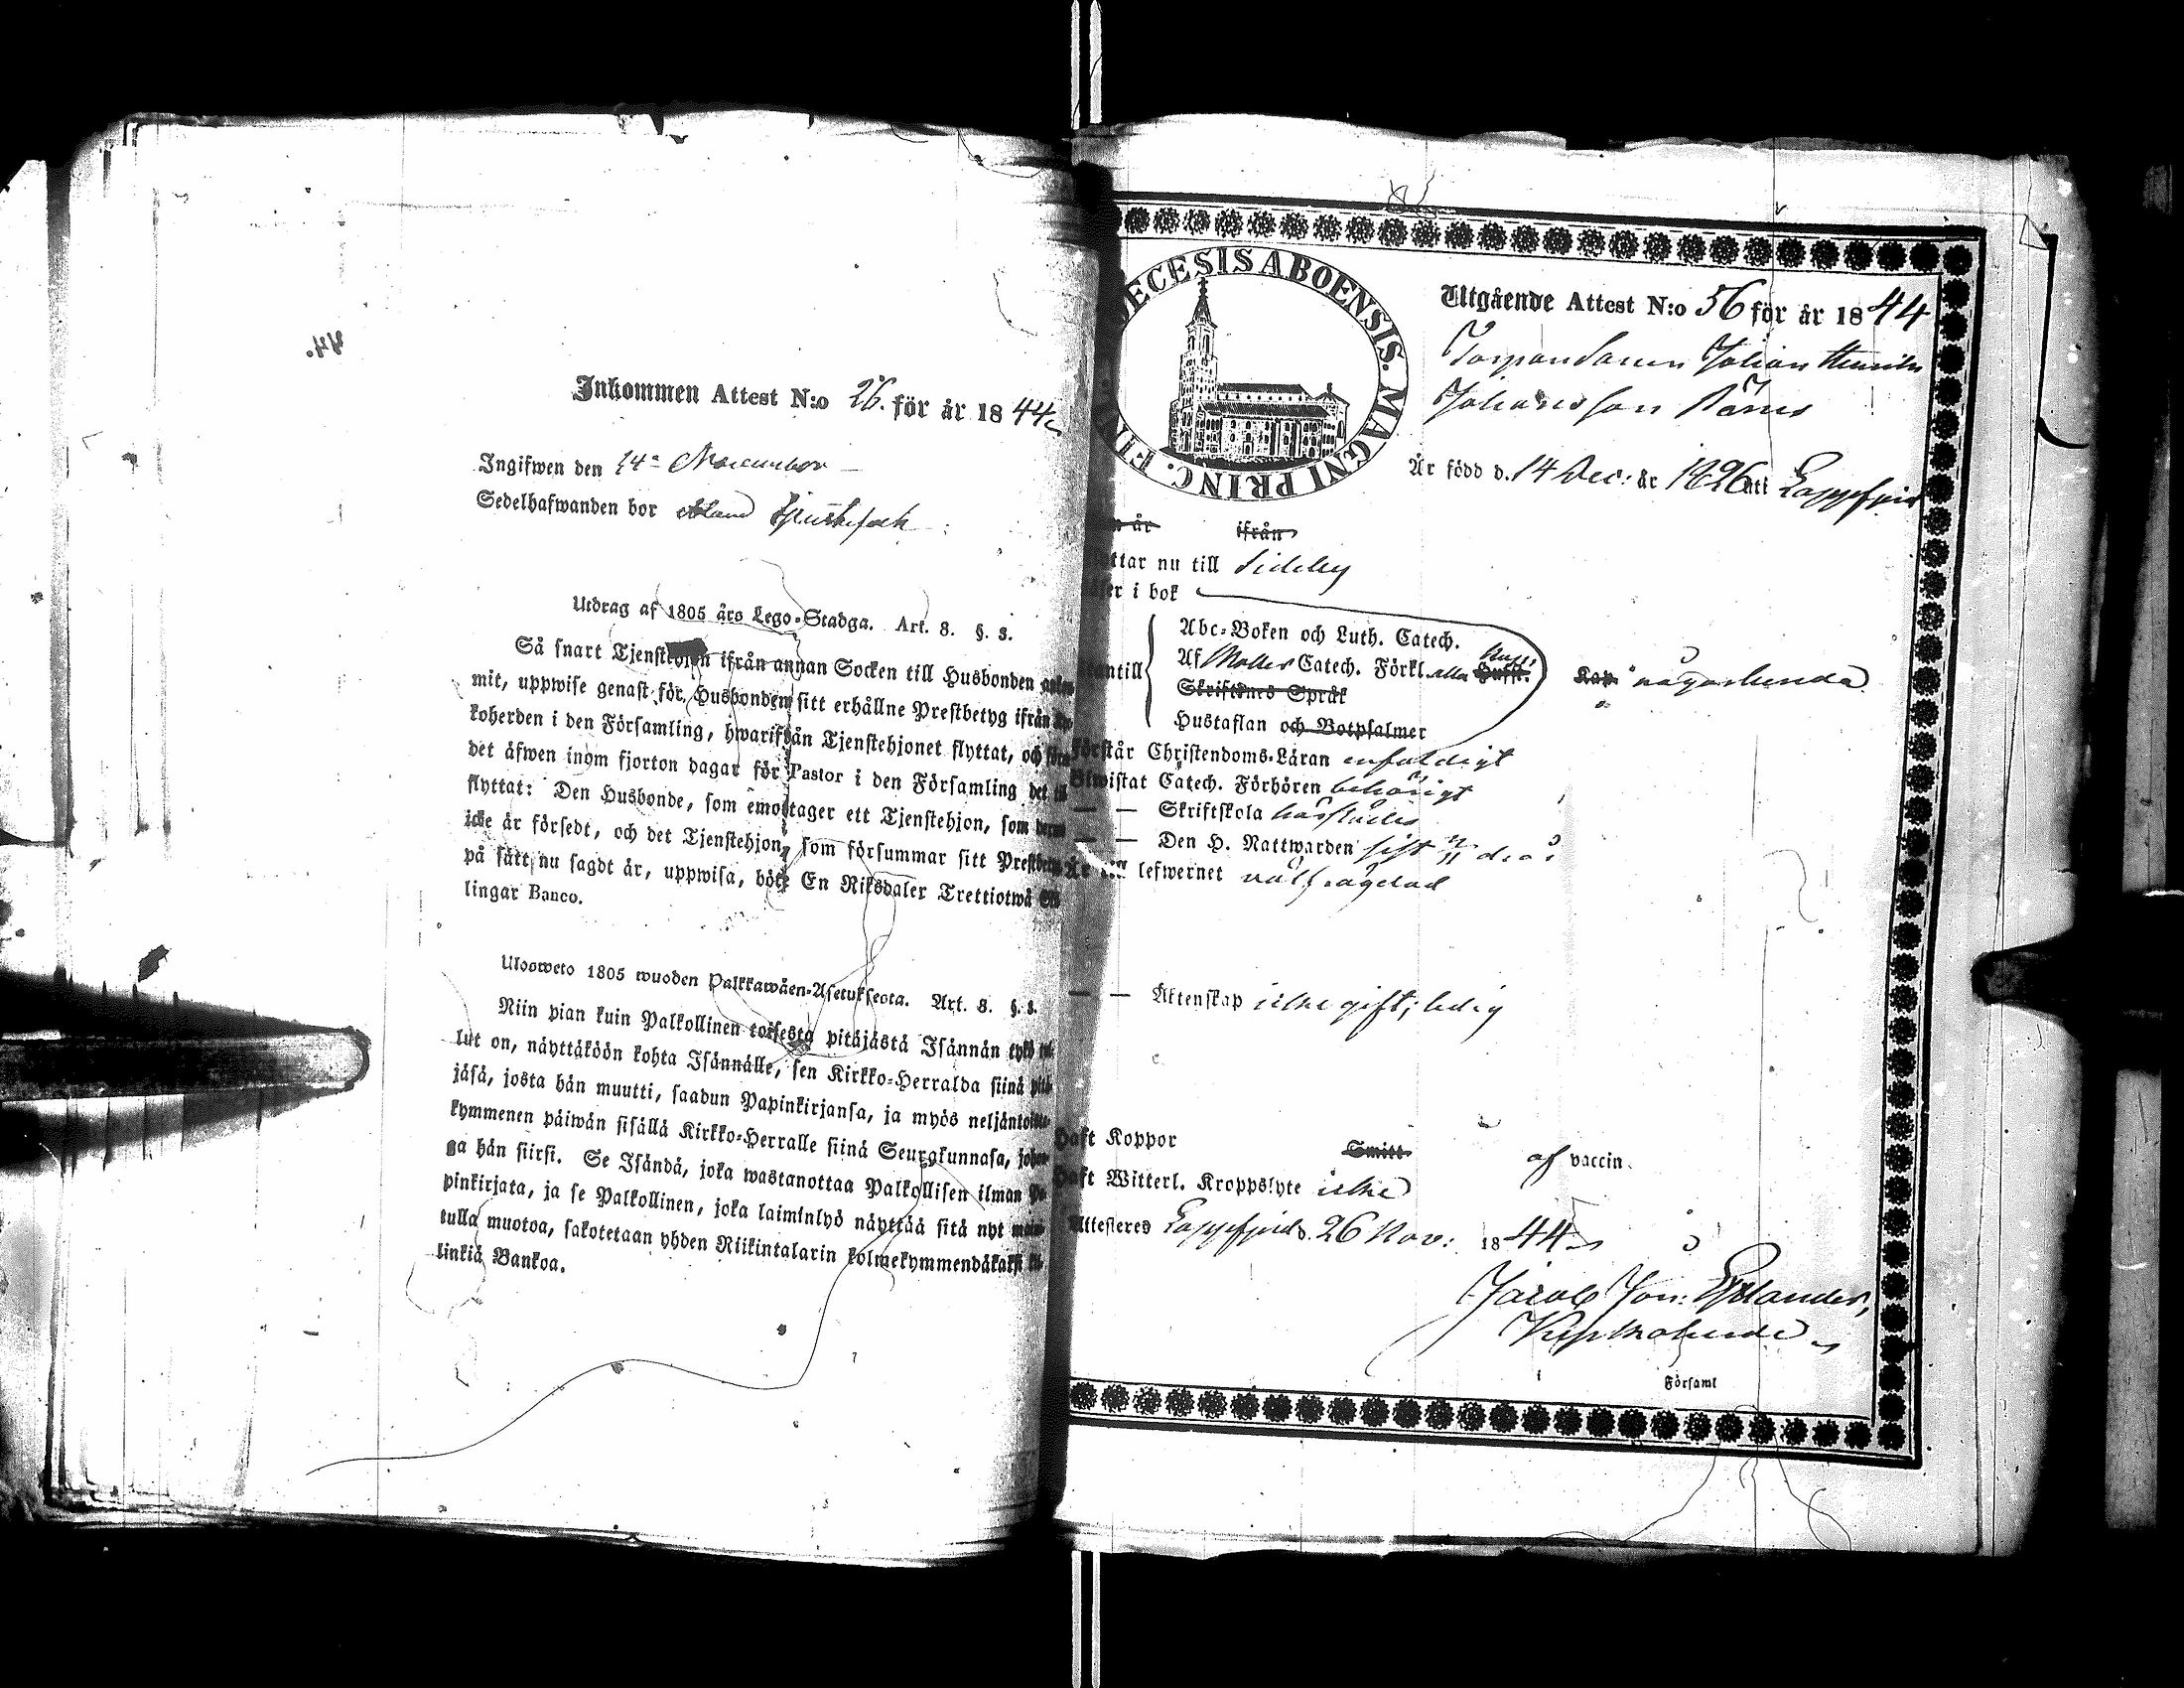 44.
Inkommen Attest N:o 26. för år 1844
Ingifwen den 14 November
Sedelhafwanden bor
Utdrag af 1805 års Lego-Stadga. Art. 8. §. 3.
Så snart Tjenstehjon ifrån annan Socken till Husbonden
mit, uppwise genast för Husbonden sitt erhållne Prestbetyg ifrån
koherden i den Församling, hwarifrån Tjenstehjonet flyttat, och
det åfwen inom fjorton dagar för Pastor i den Församling det
flyttat: Den Husbonde, som emottager ett Tjenstehjon, som
icke är försedt, och det Tjenstehjon, som försummar sitt
på sätt nu sagdt är, uppwisa, böte En Riksdaler Trettiotwå
lingar Banco.
Ulosweto 1805 wuoden Palkkawäen-Asetuksesta. Art. 8. §. 3.
Niin pian kuin Palkollinen toisesta pitäjästä Isännän tykö
lut on, näyttäköön kohta Isännälle, sen Kirkko-Herralda siinä
jäsä, josta hän muutti, saadun Papinkirjansa, ja myös
kymmenen päiwän sisällä Kirkko-Herralle siinä Seurakunnasa,
ga hän siirsi. Se Isändä, joka wastanottaa Palkollisen ilman
pinkirjata, ja se Palkollinen, joka laiminlyö näyttää sitä nyt
tulla muotoa, sakotetaan yhden Riikintalarin kolmekymmendäkaksi
linkiä Bankoa.
DIECESIS ABOENSIS. MAGNI PRINC.
Utgående Attest N:o 56 för år 1844
Johan Henrik
Johansson
Är född d. 14 Dec: år 1826 uti Lappfjerd
år ifrån
ttar nu till Sideby
i bok
Abc-Boken och Luth. Catech.
Af Catech. Förkl. alla
Kap. någorlunda
Skriftenes Språk
Hustaflan och Botpsalmer
Förstår Christendoms-Läran enfaldigt
Biwistat Catech. Förhören behörigt
— — Skriftskola härstädes
— — Den H. Nattwarden sist
lefwernet välfrägdad
— — Äktenskap icke gift; ledig
Haft Koppor Smitt af vaccin.
Haft Witterl. Kroppslyte icke
Attesteres Lappfjerd d. 26 Nov: 1844
Jacob Jon:
Kyrkoherde
i Församl